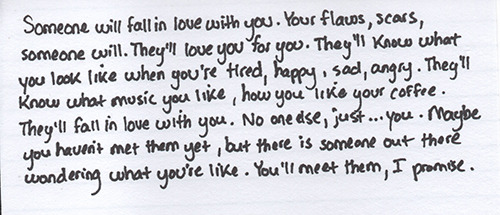 Someone will fall in love with you. Your flaws, scars,
someone will. They'll love you for you. They'll know what
you look like when you're tired, happy, sad, angry. They'll
know what music you like, how you like your coffee.
They'll fall in love with you. No one else, just...you. Maybe
you haven't met them yet, but there is someone out there
wondering what you're like. You'll meet them, I promise.